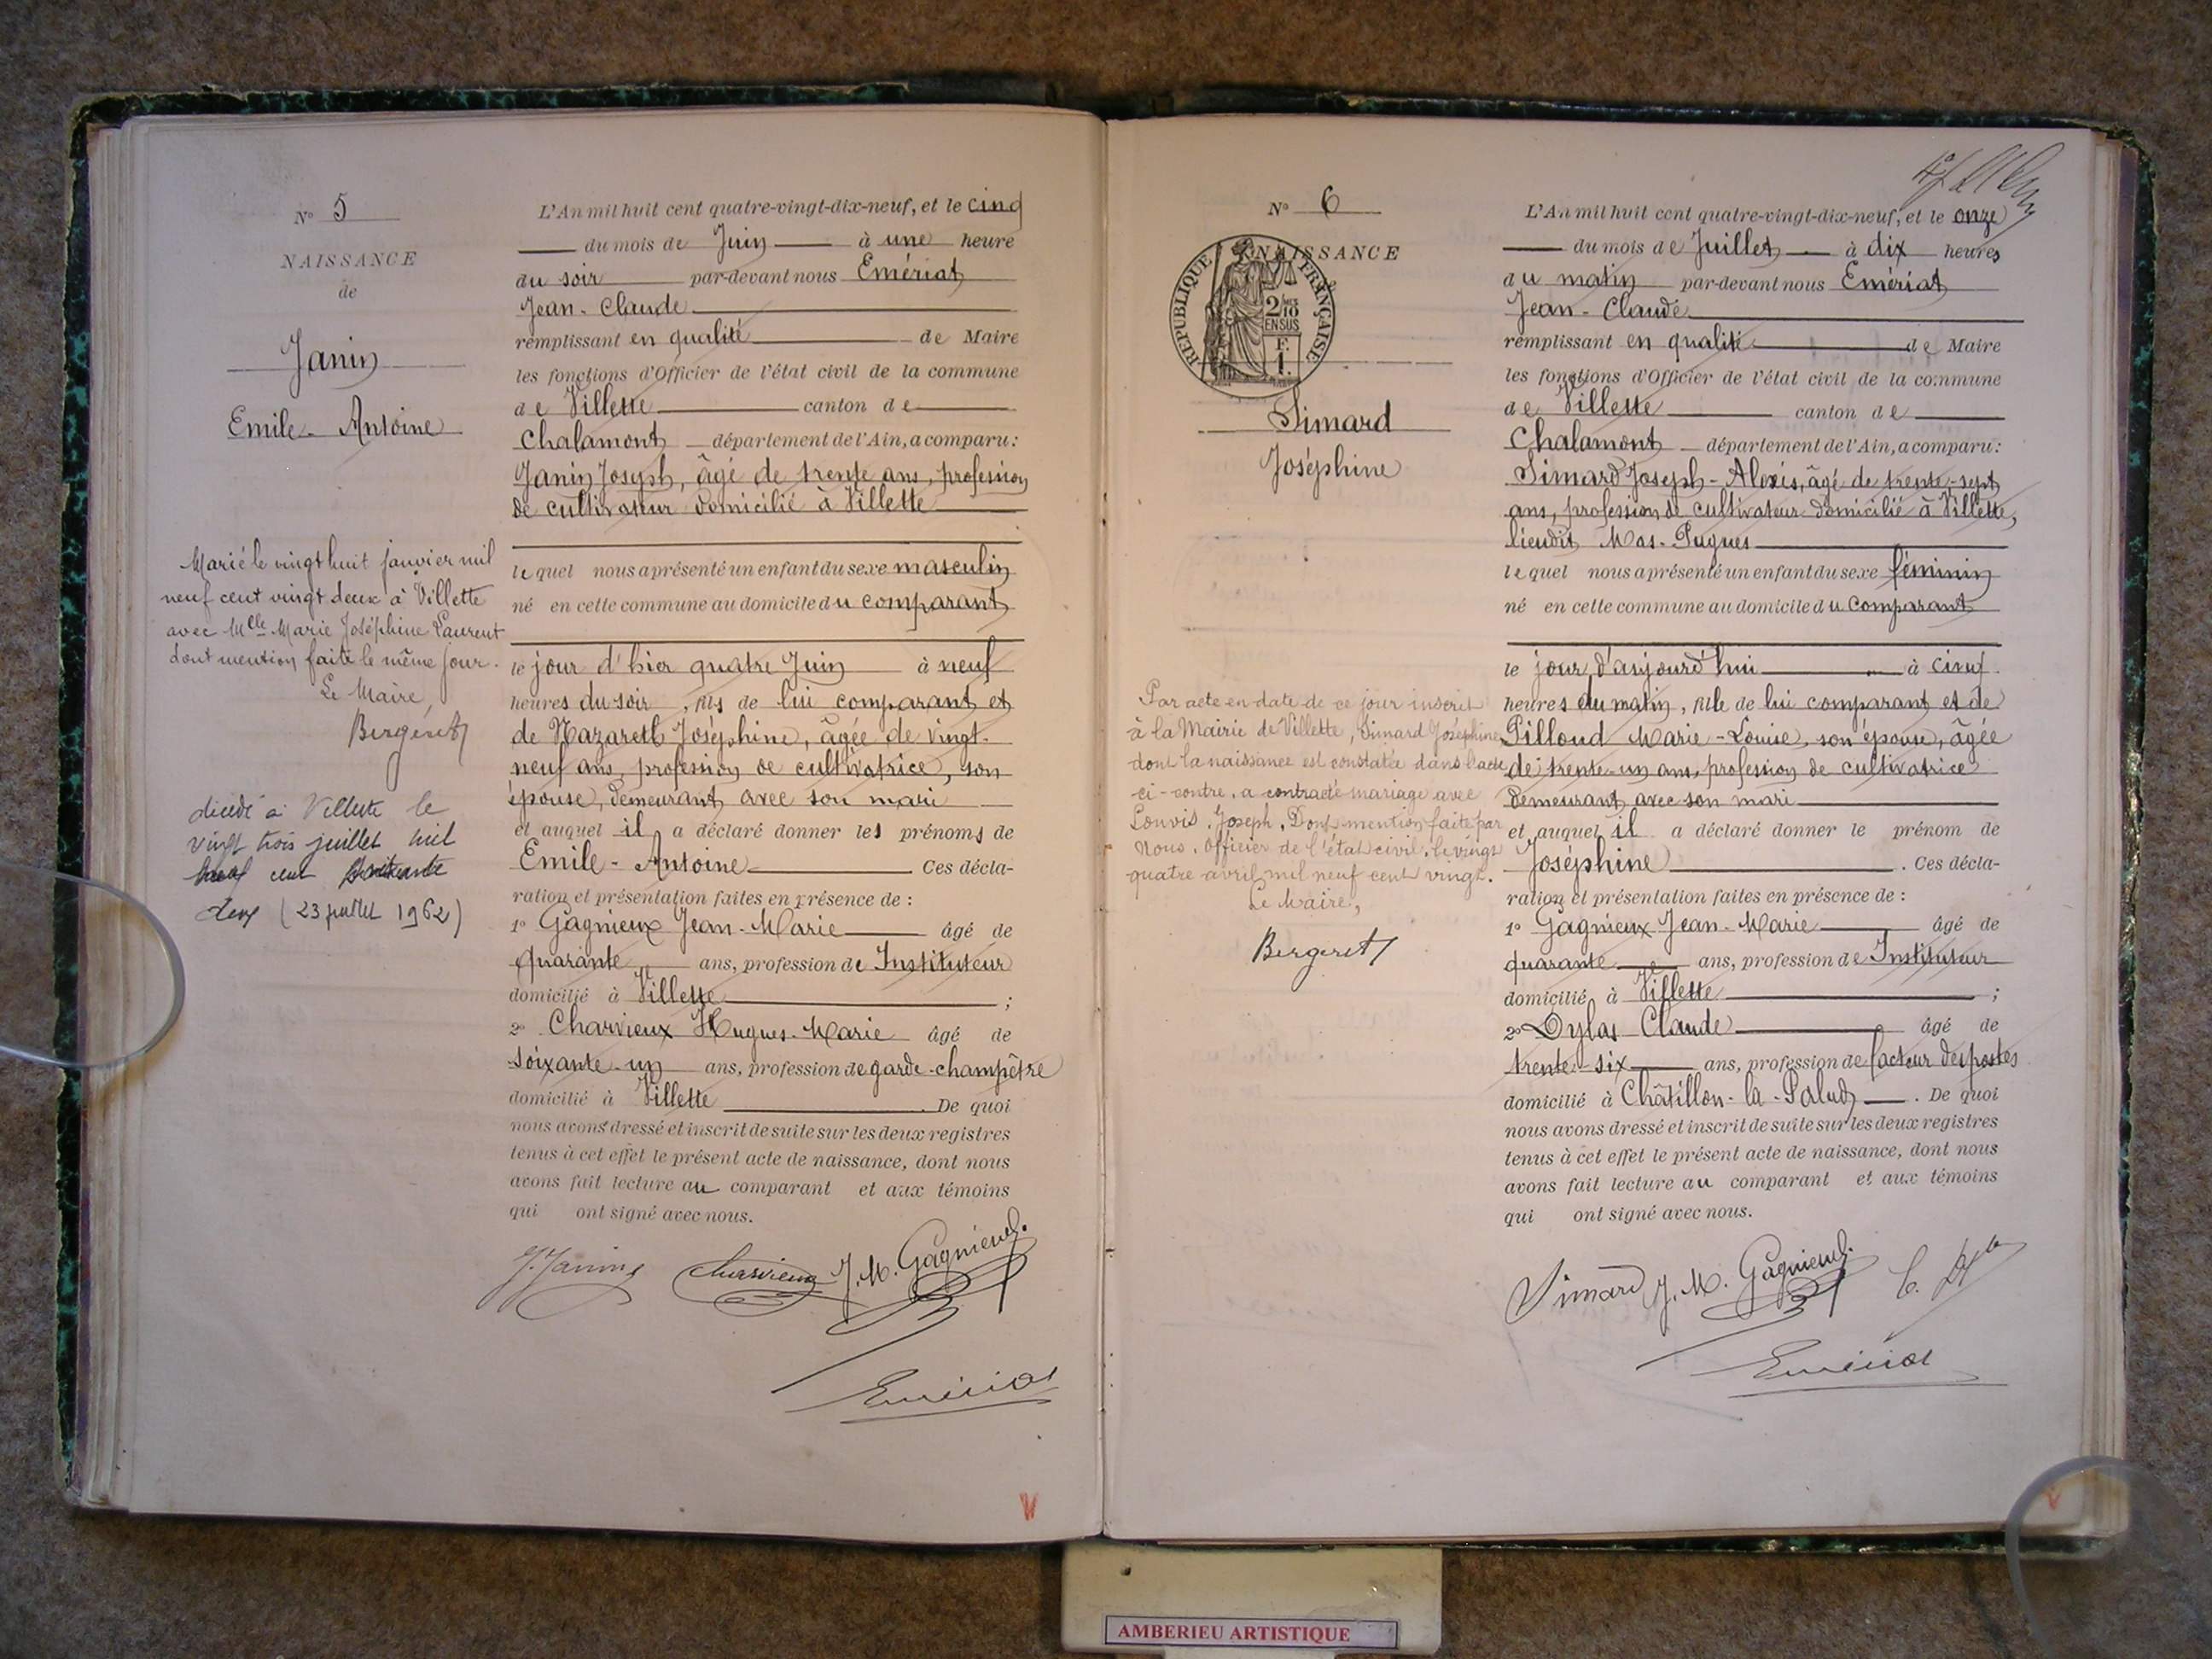 N° 5
NAISSANCE
de
Janin
Emile - Antoine
Marié le vingt huit janvier mil
neuf cent vingt deux à Villette
avec Melle Marie Joséphine Laurent
dont mention faite le même jour.
Le Maire,
Bergeret
décédé à Villette le
vingt trois juillet mil
neuf cent soixante
deux (23 juillet 1962)
L'An mil huit cent quatre-vingt-dix-neuf, et le cinq
du mois de Juin à une heure
du soir par-devant nous Emériat
Jean-Claude
remplissant en qualité de Maire
les fonctions d'Officier de l'état civil de la commune
de Villette canton de
Chalamont département de l'Ain, a comparu:
Janin Joseph, âgé de trente ans, profession
de cultivateur domicilié à Villette
lequel nous a présenté un enfant du sexe masculin
né en cette commune au domicile du comparant
le jour d'hier quatre Juin à neuf
heures du soir, fils de lui comparant et
de Nazareth Joséphine, âgée de vingt-
neuf ans, profession de cultivatrice, son
épouse, demeurant avec son mari
et auquel il a déclaré donner les prénoms de
Emile - Antoine Ces décla-
ration et présentation faites en présence de :
1° Gagnieux Jean-Marie âgé de
quarante ans, profession de Instituteur
domicilié à Villette ;
2° Charvieux Hugues-Marie âgé de
soixante-un ans, profession de garde-champêtre
domicilié à Villette . De quoi
nous avons dressé et inscrit de suite sur les deux registres
tenus à cet effet le présent acte de naissance, dont nous
avons fait lecture au comparant et aux témoins
qui ont signé avec nous.
J. Janin Charvieux J. M. Gagnieux
Emériat
V
N° 6
NAISSANCE
RÉPUBLIQUE FRANÇAISE
2/10
EN SUS
F.
1.
Simard
Joséphine
Par acte en date de ce jour inscrit
à la Mairie de Villette, Simard Joséphine
dont la naissance est constatée dans l'acte
ci-contre, a contracté mariage avec
Louvis, Joseph, Dont mention faite par
Nous, Officier de l'état civil, le vingt
quatre avril mil neuf cent vingt.
Le Maire,
Bergeret
L'An mil huit cent quatre-vingt-dix-neuf, et le onze
du mois de Juillet à dix heures
du matin par-devant nous Emériat
Jean-Claude
remplissant en qualité de Maire
les fonctions d'Officier de l'état civil de la commune
de Villette canton de
Chalamont département de l'Ain, a comparu:
Simard Joseph-Alexis, âgé de trente-sept
ans, profession de cultivateur domicilié à Villette,
lieudit Mas-Pugues
lequel nous a présenté un enfant du sexe féminin
né en cette commune au domicile du comparant
le jour d'aujourd'hui à cinq
heures du matin, fille de lui comparant et de
Pilloud Marie-Louise, son épouse, âgée
de trente-un ans, profession de cultivatrice
demeurant avec son mari
et auquel il a déclaré donner le prénom de
Joséphine . Ces décla-
ration et présentation faites en présence de :
1° Gagnieux Jean-Marie âgé de
quarante ans, profession de Instituteur
domicilié à Villette ;
2° Dylas Claude âgé de
trente-six ans, profession de facteur des postes
domicilié à Châtillon-la-Palud . De quoi
nous avons dressé et inscrit de suite sur les deux registres
tenus à cet effet le présent acte de naissance, dont nous
avons fait lecture au comparant et aux témoins
qui ont signé avec nous.
Simard J. M. Gagnieux
Emériat
V
AMBERIEU ARTISTIQUE